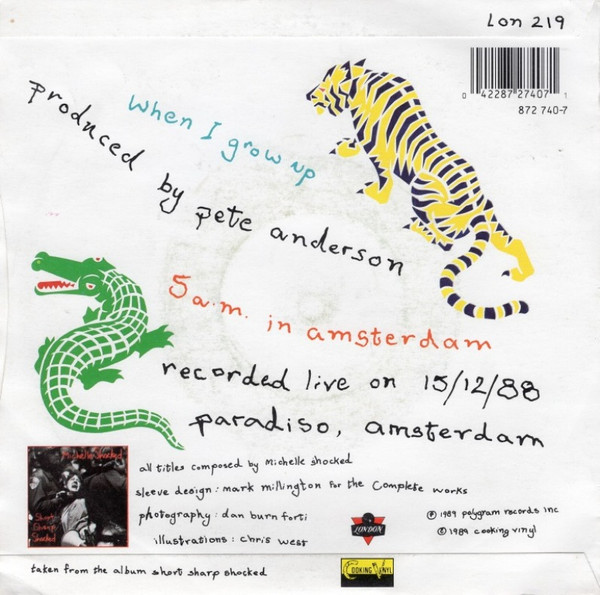 Lon 219
0 42287 27407 1
872 740-7
when I grow up
produced by pete anderson
5 a.m. in amsterdam
recorded live on 15/12/88
paradiso, amsterdam
Michelle Shocked
Short
Sharp
Shocked
all titles composed by Michelle shocked
sleeve design : mark millington for the Complete works
photography : dan burn forti
illustrations : chris west
LONDON
℗ 1989 polygram records inc
© 1989 cooking vinyl
taken from the album short sharp shocked
COOKING VINYL